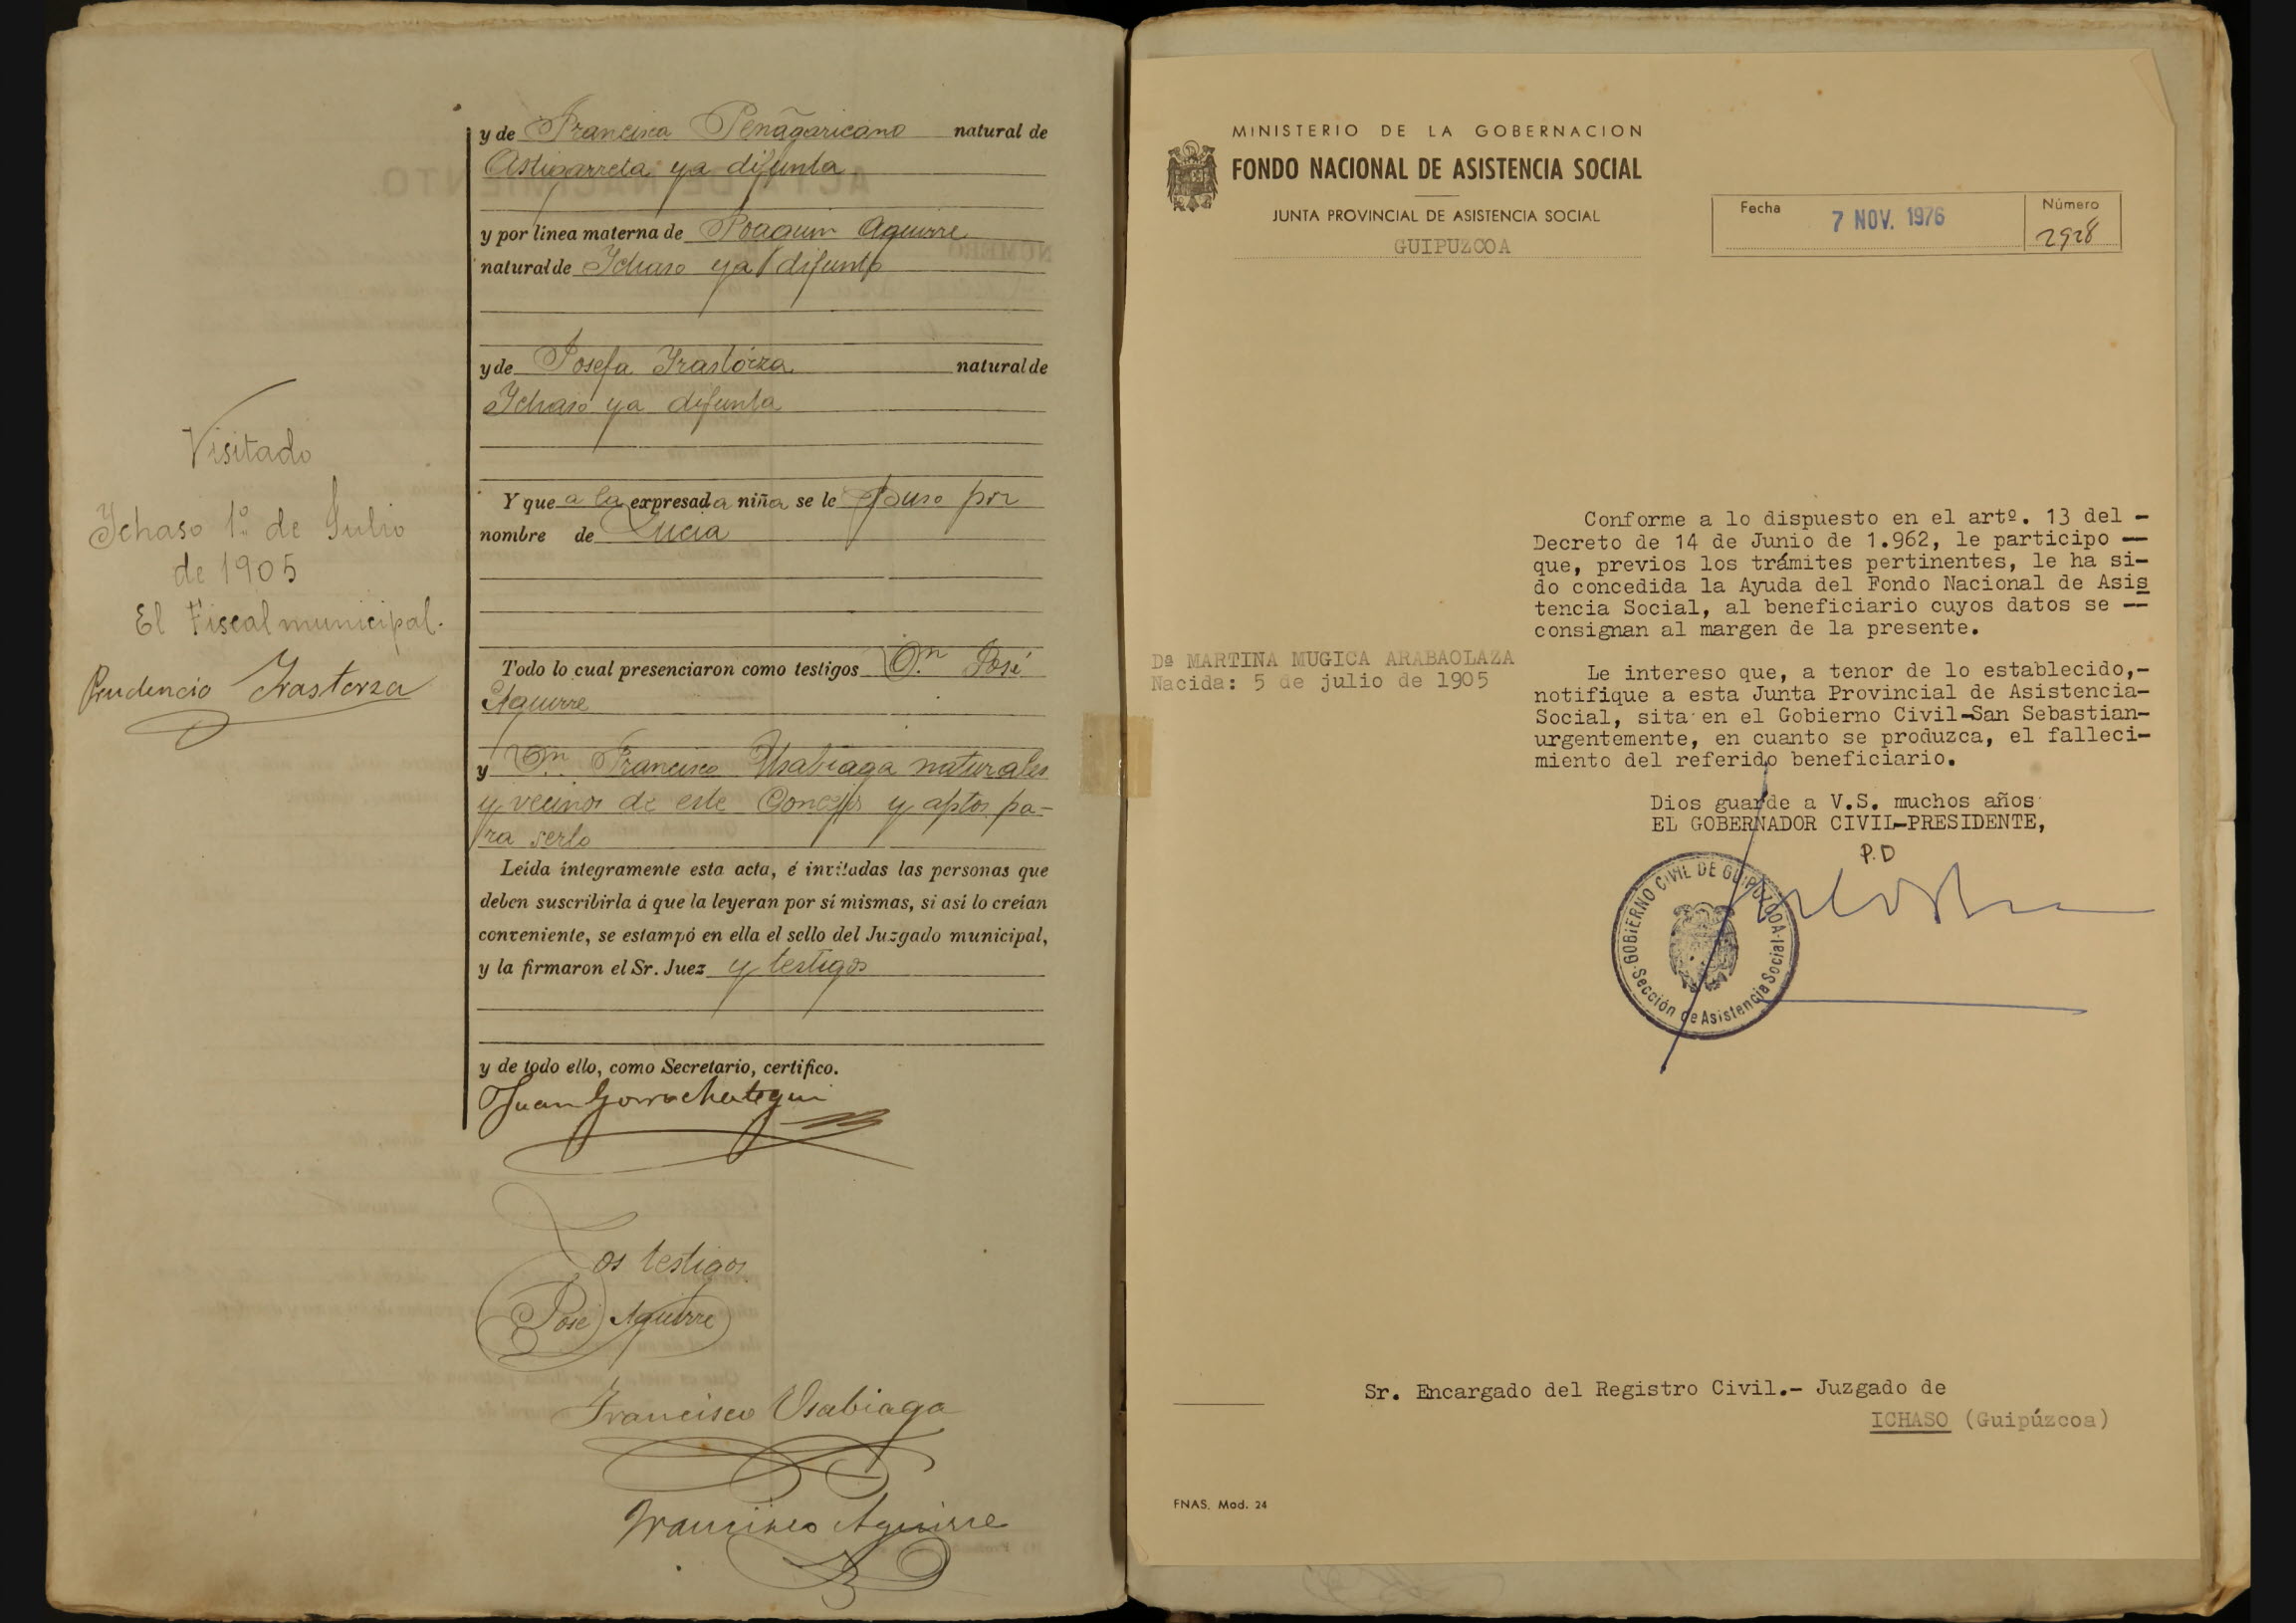 y de Francisca Peñagaricano natural de
Astigarreta ya difunta
y por línea materna de Joaquin Aguirre
natural de Ichaso ya difunto
y de Josefa Irastorza natural de
Ichaso ya difunta
Y que a la expresada niña se le puso por
nombre de Lucia
Todo lo cual presenciaron como testigos Dn. José
Aguirre
y Dn. Francisco Usabiaga naturales
y vecinos de este Concejo y aptos pa-
ra serlo
Leída íntegramente esta acta, é invitadas las personas que
deben suscribirla á que la leyeran por sí mismas, si así lo creían
conveniente, se estampó en ella el sello del Juzgado municipal,
y la firmaron el Sr. Juez y testigos
y de todo ello, como Secretario, certifico.
Juan Gorrochategui
Los testigos
José Aguirre
Francisco Usabiaga
Francisco Aguirre
Visitado
Ichaso 1º de Julio
de 1905
El Fiscal municipal.
Prudencio Irastorza
MINISTERIO DE LA GOBERNACION
FONDO NACIONAL DE ASISTENCIA SOCIAL
JUNTA PROVINCIAL DE ASISTENCIA SOCIAL
GUIPUZCOA
Fecha 7 NOV. 1976
Número 2928
Conforme a lo dispuesto en el artº. 13 del -
Decreto de 14 de Junio de 1.962, le participo --
que, previos los trámites pertinentes, le ha si-
do concedida la Ayuda del Fondo Nacional de Asis
tencia Social, al beneficiario cuyos datos se --
consignan al margen de la presente.
Dª MARTINA MUGICA ARABAOLAZA
Nacida: 5 de julio de 1905
Le intereso que, a tenor de lo establecido,-
notifique a esta Junta Provincial de Asistencia-
Social, sita en el Gobierno Civil-San Sebastian-
urgentemente, en cuanto se produzca, el falleci-
miento del referido beneficiario.
Dios guarde a V.S. muchos años
EL GOBERNADOR CIVIL-PRESIDENTE,
P.D
GOBIERNO CIVIL DE GUIPUZCOA
Sección de Asistencia Social
Sr. Encargado del Registro Civil.- Juzgado de
ICHASO (Guipúzcoa)
FNAS. Mod. 24